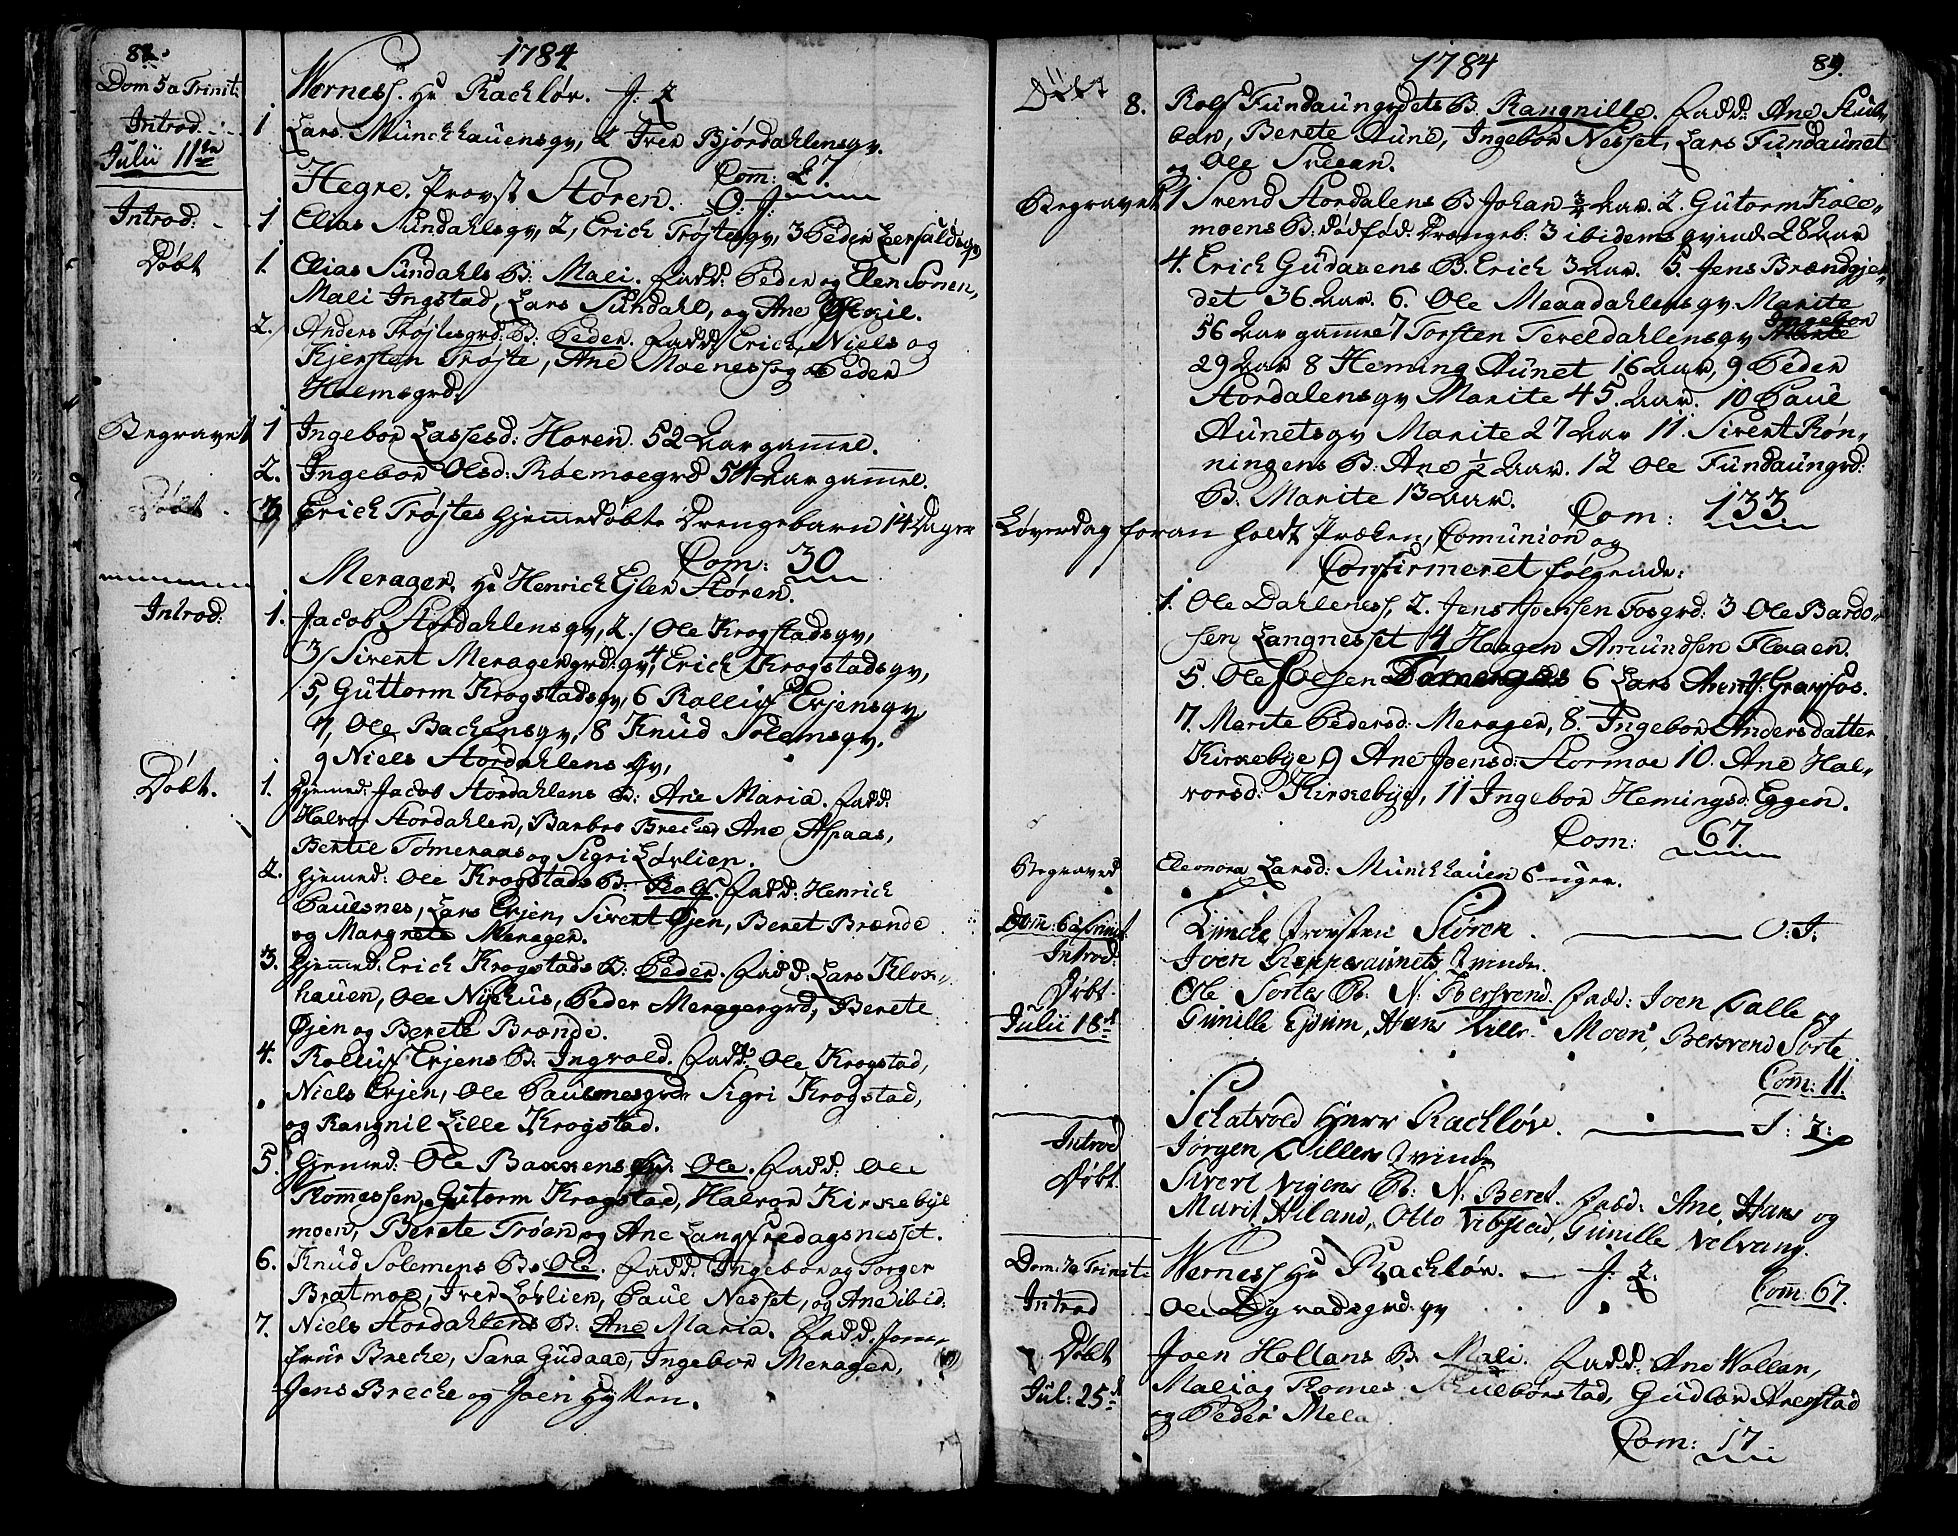 88.
1784
Dom 5 a Trinit:
Werness. Hr Rachløv. J. 2
Introd:
1 Lars Münchhauensgv, 2 Iver Bjørdahlensgv.
Julii 11te
Com: 27
Hegre. Provst Støren. O. J.
Introd:
1 Elias Sundahlsgv, 2, Erich Trøjtesgv, 3 Peder Leerfaldsgv
Døbt
1. Elias Sundahls B. Mali. Fadd: Peder og Elen Sonen,
Mali Ingstad, Lars Sundahl, og Ane
2. Anders Trøjtesgrd: B: Peder. Fadd: Erich, Niels og
Kjersten Trøjte, Ane Moeness og Peder
Hoemsgrd.
Begravet
1 Ingebor Lassesd: Horen. 52 Aar gamel.
2. Ingebor Olsd: Roemoegrd 54 Aar gamel.
Døbt
3 Erich Trøjtes hjemmedøbte Drengebarn 14 Dager
Com: 30
Merager. Hr Henrich Ejler Støren.
Introd:
1. Jacob Stordahlensgv, 2. Ole Krogstadsgv,
3 Sivent Meragergrd: gv, 4 Erich Krogstadsgv,
5, Guttorm Krogstadsgv, 6 Rolluf Erjensgv,
7, Ole Bachensgv, 8 Knud Solemsgv,
9 Niels Stordahlens gv,
Døbt.
1. Hjemed: Jacob Stordahlens B: Ane Maria. Fadd:
Halvor Stordahlen, Barbro Breche, Ane Aspaas,
Bertil Tømeraas og Sigri Løvlien.
2. hjemed: Ole Krogstads B: Rolf. Fadd: Henrich
Pauesnes, Lars Erjen, Sivent Øjen, Beret Brænde
og Margrete Merager.
3. Hjemed: Erich Krogstads B: Peder. Fadd: Lars Klox-
hauen, Ole Nyhus, Peder Meragergrd, Berete
Øjen og Berete Brænde.
4. Rolluf Erjens B. Ingvold. Fadd: Ole Krogstad,
Niels Erjen, Ole Sigri Krogstad,
og Rangnil Lille Krogstad.
5. hjemed: Ole Baxxens B: Ole. Fadd: Ole
Tomessen, Gutorm Krogstad, Halvor Kirkebye
moen, Berete Trøen og Ane Langfredagsnesset.
6. Knud Solemens B: Ole. Fadd: Ingebor og Torger
Bratmoe, Iver Løvlien, Paul Nesset, og Ane ibid:
7. Niels Stordahlens B: Ane Maria. Fadd: Jom-
frue Breche, Sara Gudaad, Ingebor Merager,
Jens Breche og Joen Hylken.
1784
89.
Døbt
8. Rolf Fundaungrdets B. Rangnille. Fadd: Ane Kul-
bar, Berete Aune, Ingebor Nesset, Lars Fundaunet
og Ole Sveean.
Begravet
1 Svend Stordalens B Johan 3/4 Aar. 2. Gutorm Kole-
moens B: dødfød: Drængeb: 3 ibidems qvinde 28 Aar
4. Erich Gudaaens B. Erich 3 Aar. 5. Jens Brændgjer-
det 36 Aar. 6. Ole Meaadahlensgv: Marite
56 Aar gamel 7 Torsten Teveldahlensgv Ingebor
29 Aar 8 Heming Aunet 16 Aar, 9 Peder
Stordalensgv Marite 45. Aar. 10 Paul
Aunetsgv Marite 27 Aar 11. Sivent Røn-
ningens B: Ane 1/2 Aar. 12 Ole Fundaungrd:
B. Marite 13 Aar.
Com: 133
Løverdag foran holdt Præken, Comunion og
Confirmeret følgende:
1. Ole Dahleness, 2. Jens Joensen Fosgrd: 3 Ole Bardo-
sen Langnesset 4 Haagen Amundsen Flaaen.
5. Ole Joesen 6 Lars Arents: Gravfos.
7. Marite Pedersd: Merager, 8. Ingebor Andersdatter
Kirkebye, 9 Ane Joensd: Stormoe 10. Ane Hal-
vorsd: Kirkebye, 11 Ingebor Hemingsd: Eggen.
Com: 67.
Begraved
Eleonora Larsd: Münchhauen 6 uger.
Dom: 6 a Trinit
Lüncke Provsten Støren. O: J:
Introd:
Joen Reppesaunets Qvinde.
Døbt.
Ole Sortes B: N: Bersvend. Fadd: Joen Salle og
Julii 18d
Gunille Ejdum, Hans Moen, Bersvend Sorte
Com: 11.
Schatvold Herr Rachløv. J: 2:
Introd
Jørgen Villens Qvinde
Døbt.
Sivert Vigens B: N: Beret. Fadd: Ane, Hans og
Marit Hiland, Otto Vibstad, Gunille Velvang.
Dom: 7 a Trinit
Werness Hr Rachløv. J: 2.
Com: 67.
Introd
Ole Dyvadsgrd: gv
Døbt
Joen Hollans B. Mali. Fadd: Ane Wollan,
Jul: 25d
Mali og Tomes Kulbørstad, Gudlov Arenstad
og Peder Mela
Com: 17.